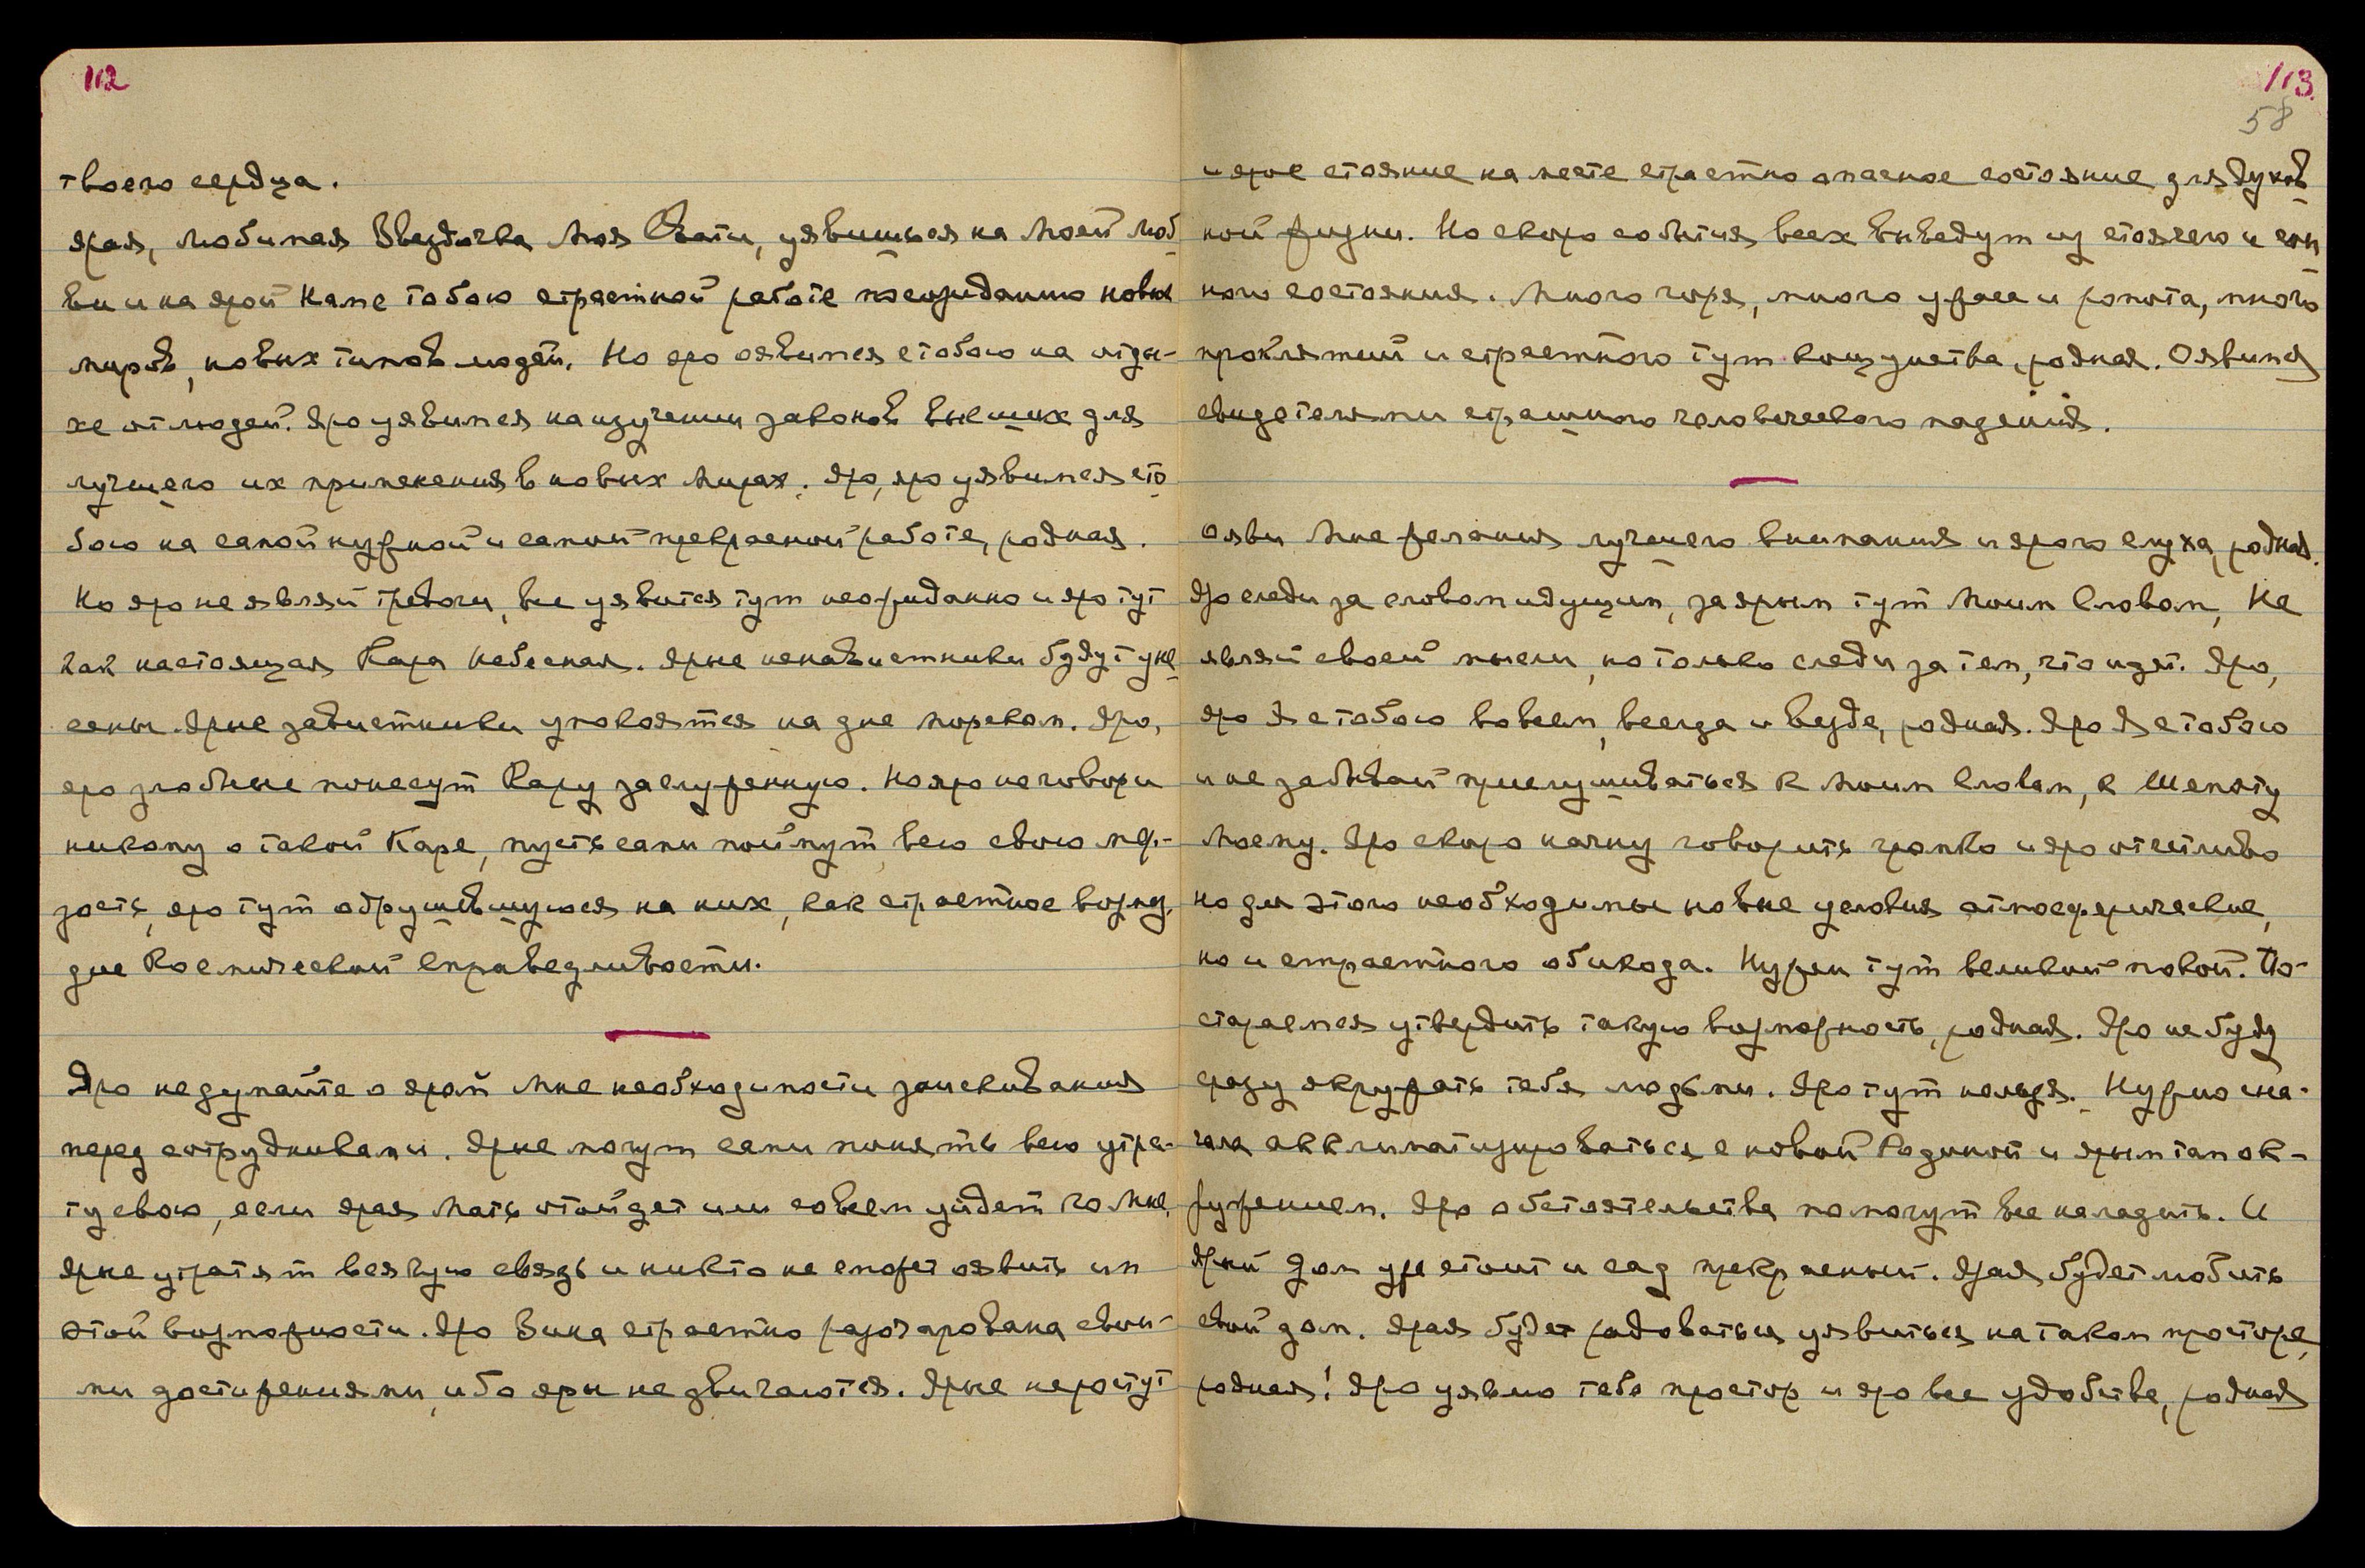 112
твоего сердца.
Ярая, любимая Звездочка Моя Свати, уявишься на Моей люб-
ви и на ярой Нам с тобою страстной работе по созиданию новых
миров, новых типов людей. Но яро оявимся с тобою на отды-
хе от людей. Яро уявимся на изучении законов высших для
лучшего их применения в новых Мирах. Яро, яро уявимся с то-
бою на самой нужной и самой прекрасной работе, родная.
Но яро не являй тревоги, все уявится тут неожиданно и яро тут
как настоящая Кара Небесная. Ярые ненавистники будут уне-
сены. Ярые завистники упокоятся на дне морском. Яро,
яро злобные понесут Кару заслуженную. Но яро не говори
никому о такой Каре, пусть сами поймут всю свою мер-
зость, яро тут обрушившуюся на них, как страстное возмез-
дие Космической Справедливости.
Яро не думайте о ярой Мне необходимости заискивания
перед сотрудниками. Ярые могут сами понять всю утра-
ту свою, если ярая Мать отойдет или совсем уйдет ко Мне.
Ярые утратят всякую связь и никто не сможет оявить им
этой возможности. Яро Зина страстно разочарована свои-
ми достижениями, ибо яры не двигаются. Ярые не растут
113.
58
и ярое стояние на месте страстно опасное состояние для духов-
ной жизни. Но скоро события всех выведут из стоячего и сон-
ного состояния. Много горя, много ужаса и ропота, много
проклятий и страстного тут кощунства, родная. Оявимся
свидетелями страшного человеческого падения.
Ояви Мне желания лучшего внимания и ярого слуха, родная.
Яро следи за словом идущим, за ярым тут Моим Словом, Не
являй своей мысли, но только следи за тем, что идет. Яро,
яро Я с тобою во всем, всегда и везде, родная. Яро Я с тобою
и не забывай прислушиваться к Моим Словам, к Шепоту
Моему. Яро скоро начну говорить громко и яро отчетливо
но для этого необходимы новые условия атмосферические,
но и страстного обихода. Нужен тут великий покой. По-
стараемся утвердить такую возможность, родная. Яро не буду
сразу окружать тебя людьми. Яро тут нельзя. Нужно сна-
чала акклиматизироваться с новой Родиной и ярым там ок-
ружением. Яро обстоятельства помогут все наладить. И
Ярый дом уже стоит и сад прекрасный. Ярая будет любить
свой дом. Ярая будет радоваться уявиться на таком просторе,
родная! Яро уявлю тебе простор и яро все удобства, родная